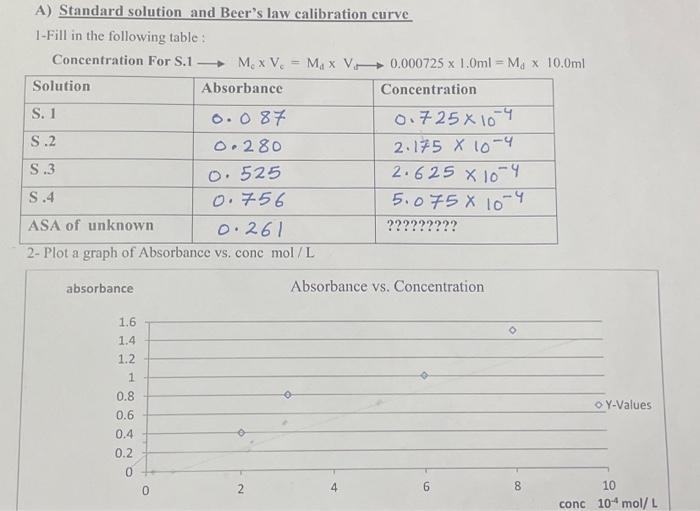 A) Standard solution and Beer's law calibration curve
1-Fill in the following table :
Concentration For S.1 → Mc x Vc = Md x Vd → 0.000725 x 1.0ml = Md x 10.0ml
Solution Absorbance Concentration
S. 1 0.087 0.725 x 10⁻⁴
S .2 0.280 2.175 x 10⁻⁴
S .3 0.525 2.625 x 10⁻⁴
S .4 0.756 5.075 x 10⁻⁴
ASA of unknown 0.261 ?????????
2- Plot a graph of Absorbance vs. conc mol / L
absorbance Absorbance vs. Concentration
1.6
1.4
1.2
1
0.8
0.6
0.4
0.2
0
Y-Values
0 2 4 6 8 10
conc 10⁻⁴ mol/ L